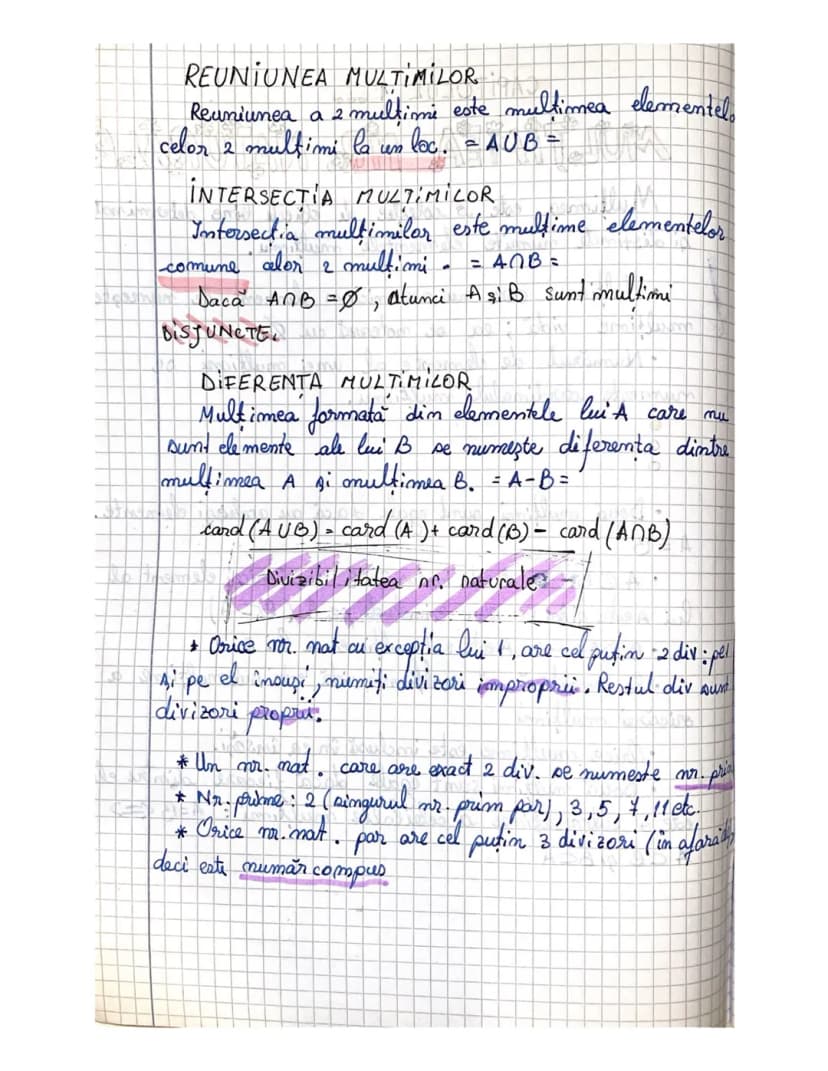 REUNIUNEA MULȚIMILOR
Reuniunea a 2 mulțimi este mulțimea elementelo
celor 2 mulțimi la un loc. = A∪B =
INTERSECȚIA MULȚIMILOR
Intersecția mulțimilor este mulțime elementelor
comune celor 2 mulțimi. = A∩B =
Dacă A∩B = Ø, atunci A și B sunt mulțimi
DISJUNCTE.
DIFERENȚA MULȚIMILOR
Mulțimea formată din elementele lui A care nu
sunt elemente ale lui B se numește diferența dintre
mulțimea A și mulțimea B. = A-B =
card (A∪B) = card (A) + card (B) - card (A∩B)
Divizibilitatea nr. naturale
* Orice nr. nat cu excepția lui 1, are cel puțin 2 div: pe 1
și pe el însuși, numiți divizori improprii. Restul div sunt
divizori proprii.
* Un nr. nat. care are exact 2 div. se numeste nr. pri
* Nr. prime: 2 (singurul nr. prim par), 3, 5, 7, 11 etc.
* Orice nr. nat. par are cel puțin 3 divizori (în afara
deci este număr compus